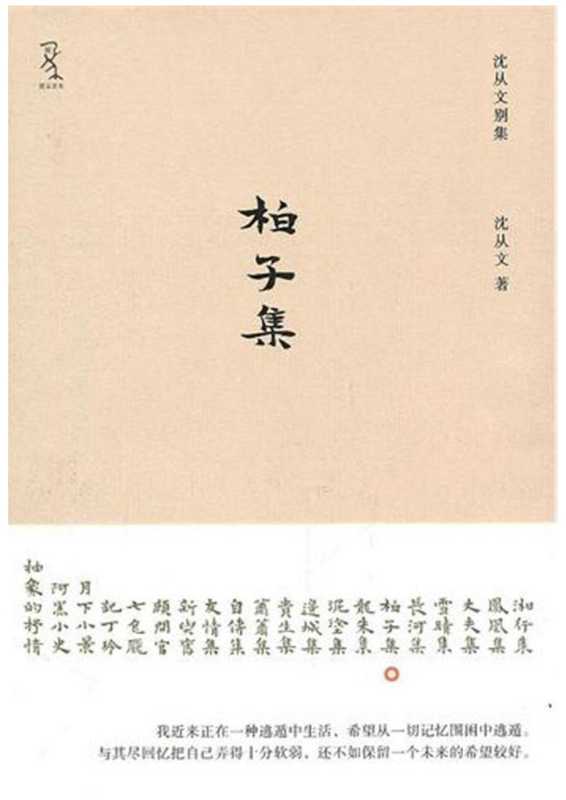 沈从文别集
沈从文 著
柏子集
湘行集
鳳凰集
丈夫集
雪晴集
長河集
柏子集
龍朱集
泥塗集
邊城集
貴生集
蕭蕭集
自傳集
友情集
新與舊
顧問官
七色魘
記丁玲
月下小景
阿黑小史
抽象的抒情
我近来正在一种逃遁中生活，希望从一切记忆围困中逃遁。
与其尽回忆把自己弄得十分软弱，还不如保留一个未来的希望较好。